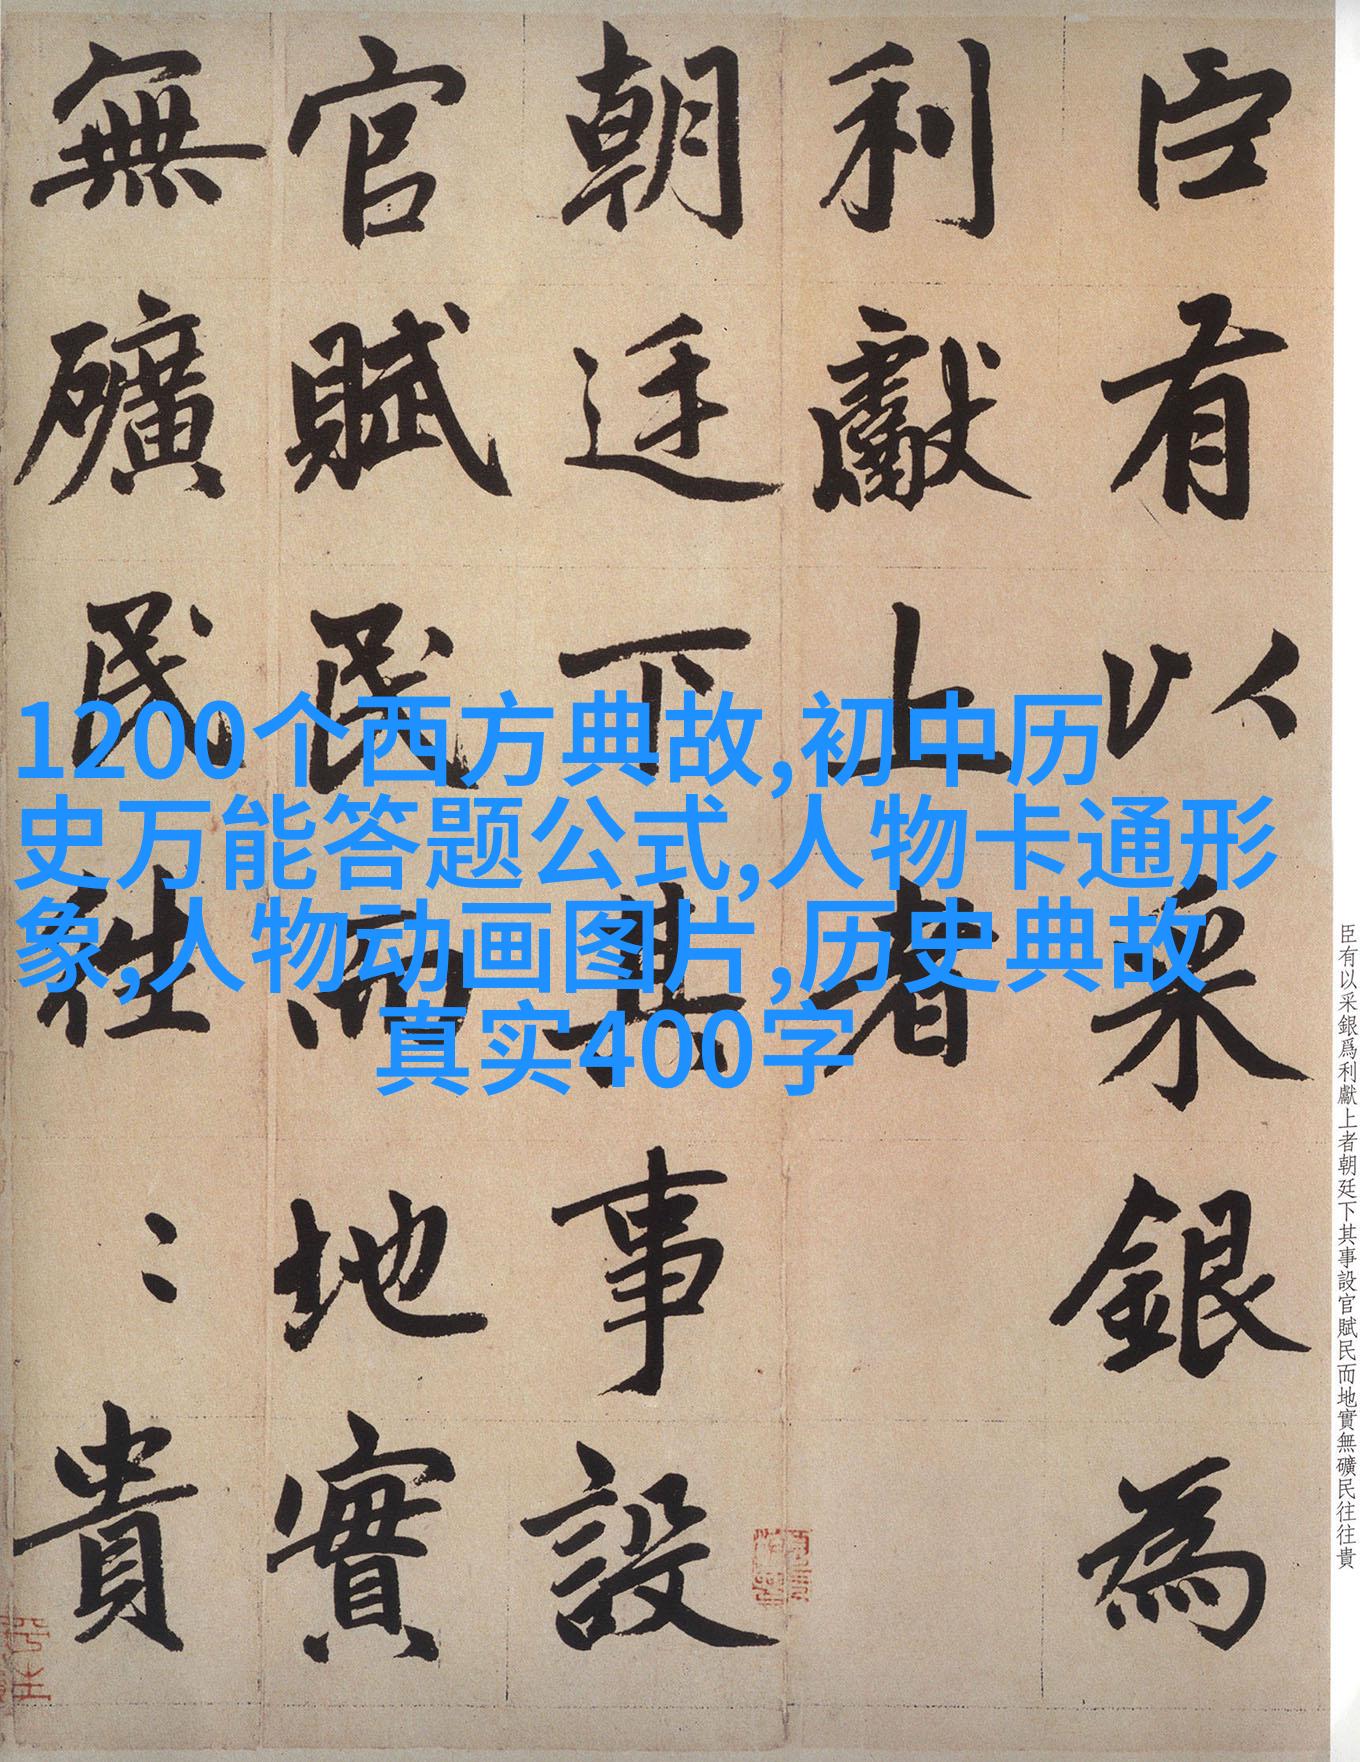 臣有以采銀為
利獻上者
朝廷下其事設
官賦民而地實
無礦民往〻貴
1200个西方典故,初中历
史万能答题公式,人物卡通形
象,人物动画图片,历史典故
真实400字
臣有以采銀爲利獻上者朝廷下其事設官賦民而地實無礦民往往貴